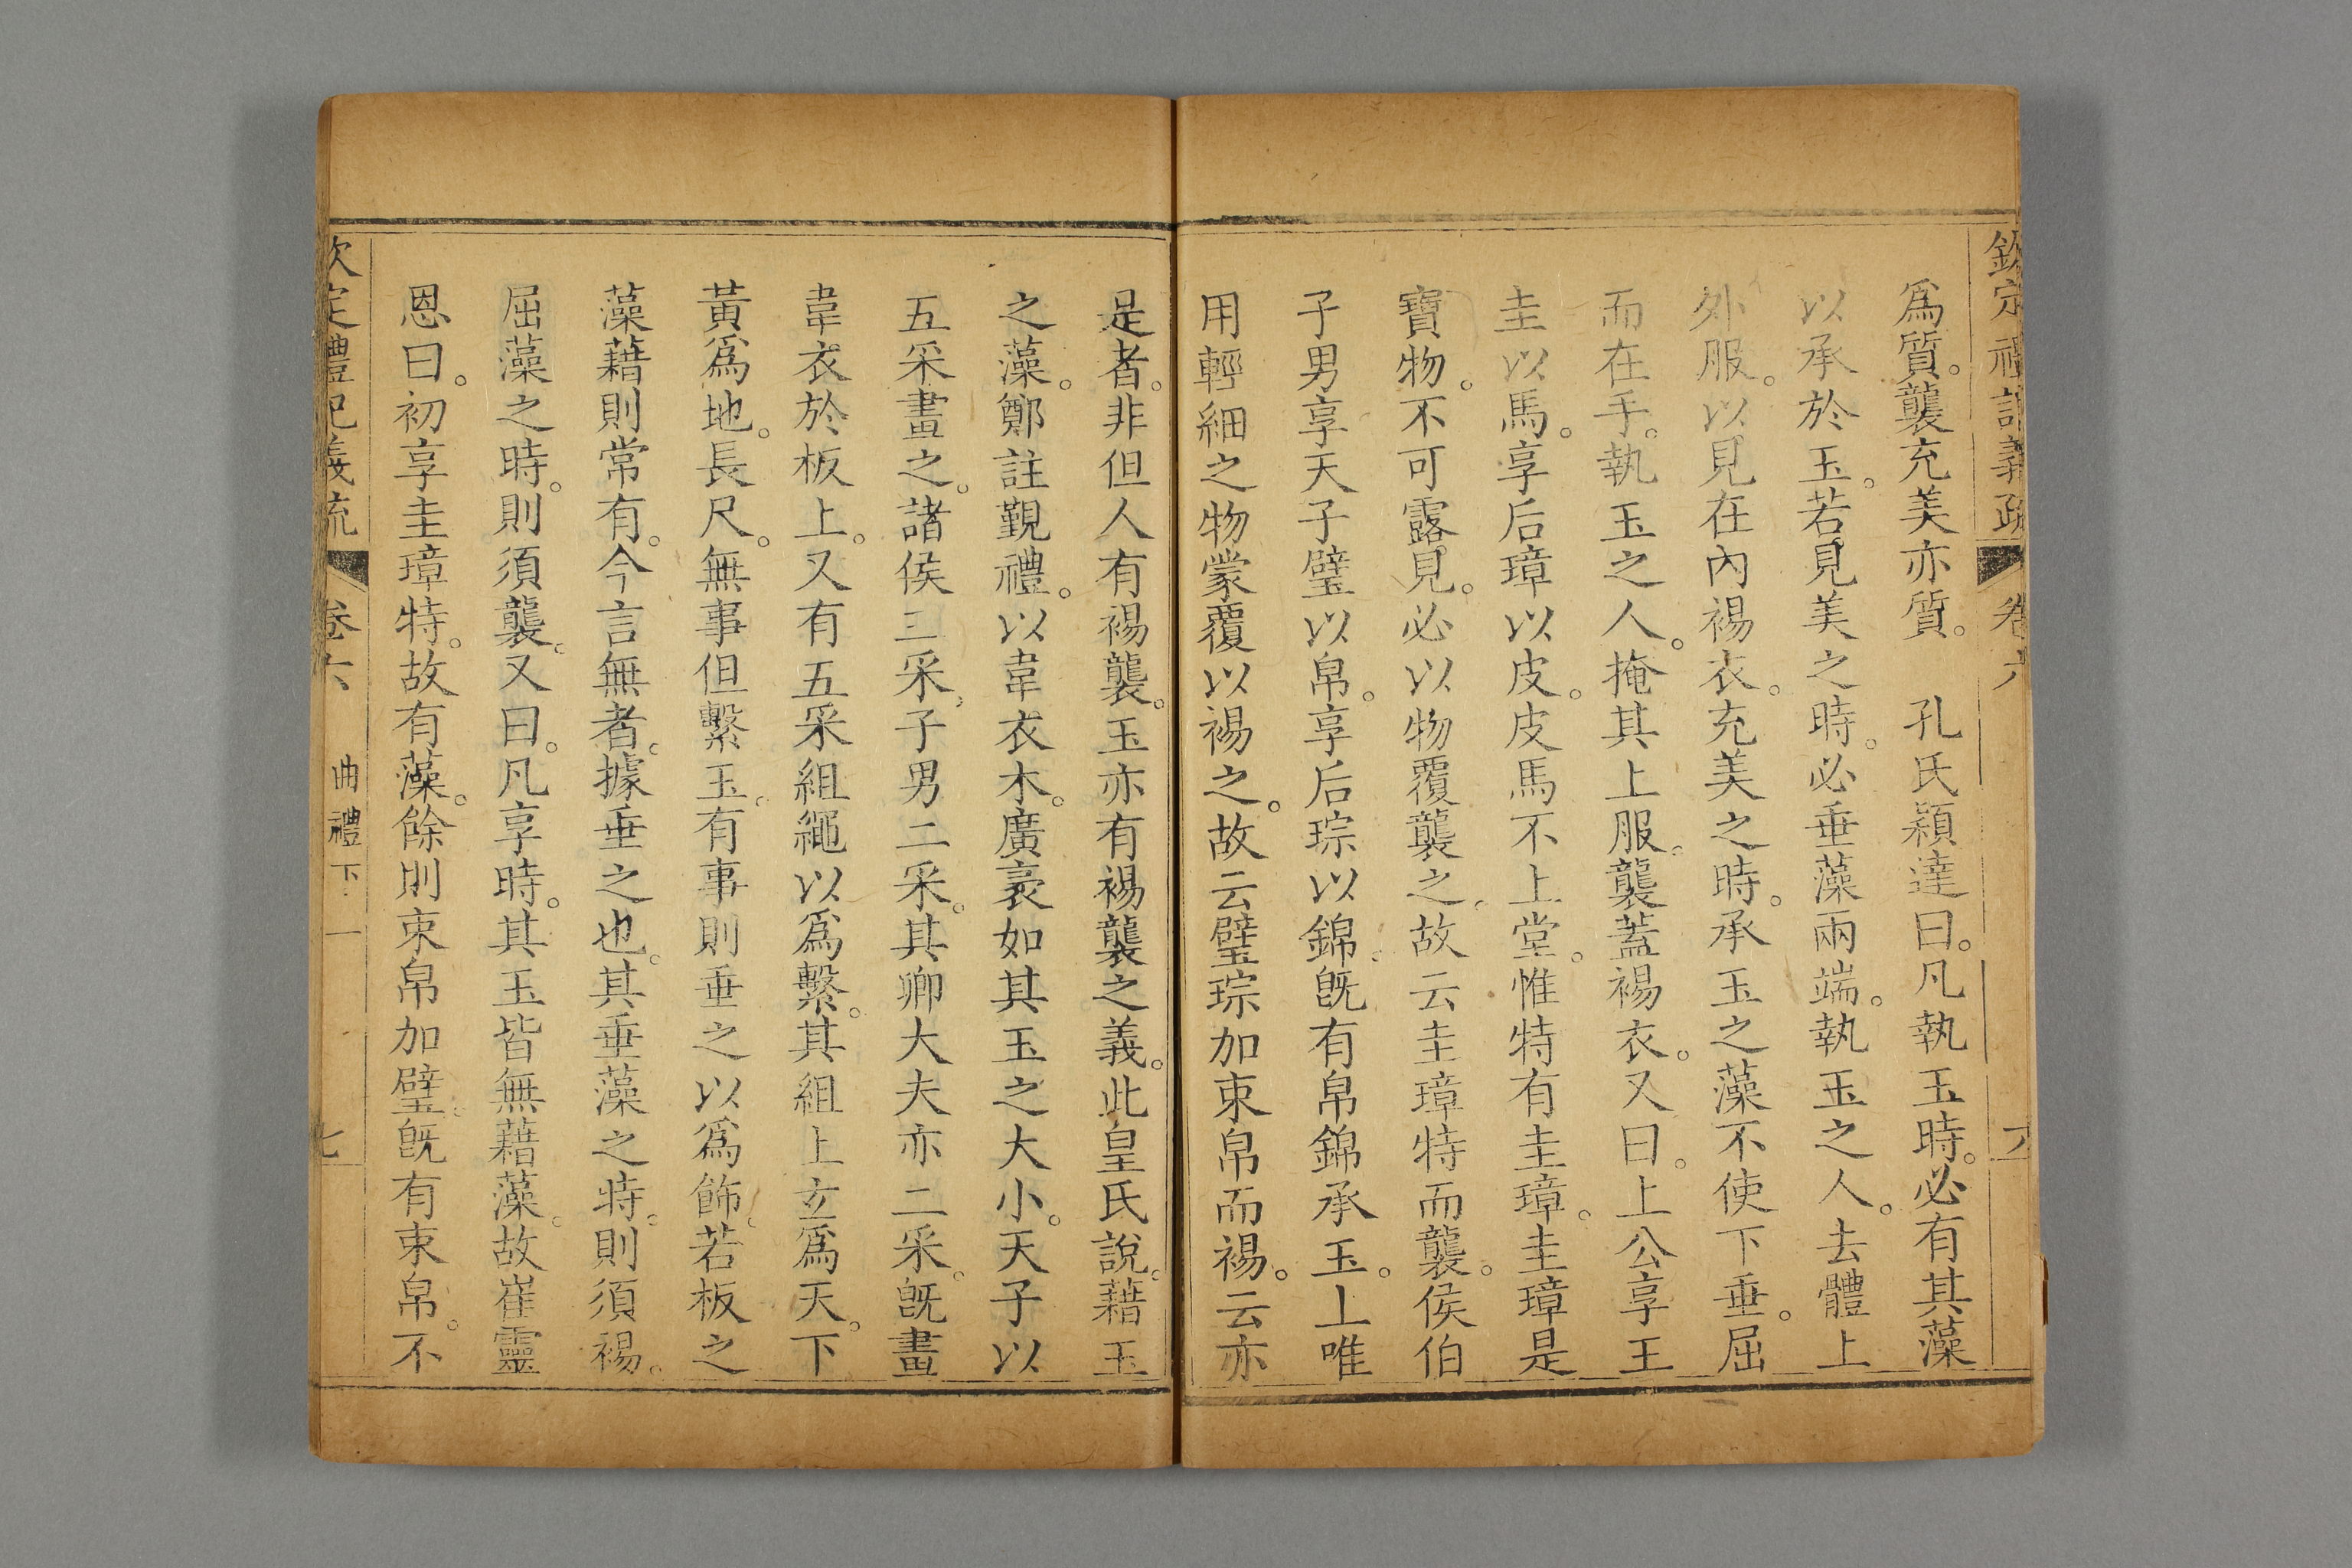 欽定禮記義疏 卷六
爲質。襲充美亦質。 孔氏穎達曰。凡執玉時。必有其藻
以承於玉。若見美之時。必垂藻兩端。執玉之人。去體上
外服。以見在內裼衣。充美之時。承玉之藻不使下垂。屈
而在手。執玉之人。掩其上服。襲蓋裼衣。又曰。上公享王
圭以馬。享后璋以皮。皮馬不上堂。惟特有圭璋。圭璋是
寶物。不可露見。必以物覆襲之。故云圭璋特而襲。侯伯
子男享天子璧以帛。享后琮以錦。旣有帛錦承玉。上唯
用輕細之物蒙覆以裼之。故云璧琮加束帛而裼。云亦
是者。非但人有裼襲。玉亦有裼襲之義。此皇氏說。藉玉
之藻。鄭註覲禮。以韋衣木。廣袤如其玉之大小。天子以
五采畫之。諸侯三采。子男二采。其卿大夫亦二采。旣畫
韋衣於板上。又有五采組繩以爲繫。其組上玄爲天。下
黃爲地。長尺。無事但繫玉。有事則垂之以爲飾。若板之
藻藉則常有。今言無者。據垂之也。其垂藻之時。則須裼。
屈藻之時。則須襲。又曰。凡享時。其玉皆無藉藻。故崔靈
恩曰。初享圭璋特。故有藻。餘則束帛加璧。旣有束帛。不
欽定禮記義疏 卷六 曲禮下 七